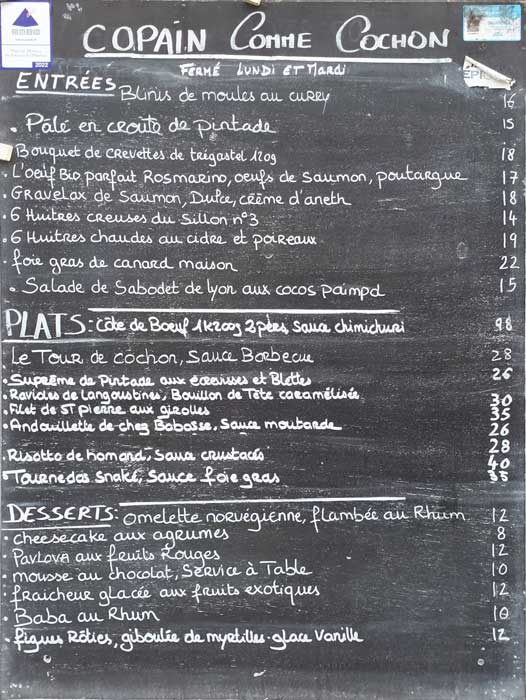 COPAIN COMME COCHON
FERMÉ LUNDI ET MARDI
ENTRÉES
Blinis de moules au curry 16
. Pâté en croûte de pintade 15
Bouquet de crevettes de trégastel 120g 18
. L'oeif Bio parfait Rosmarino, oeufs de Saumon, poutargue 17
. Gravelax de Saumon, Dulce, crème d'aneth 18
. 6 Huitres creuses du Sillon n°3 14
. 6 Huitres chaudes au cidre et poireaux 19
. foie gras de canard maison 22
. Salade de Sabodet de lyon aux cocos paimpol 15
PLATS: Côte de Boeuf 1k200g 2pers, Sauce chimichuri 98
Le Tour de cochon, Sauce Barbecue 28
. Suprême de Pintade aux écrevisses et Blettes 26
. Ravioles de Langoustines, Bouillon de Tête caramélisée 30
. Filet de ST pierre aux girolles 35
. Andouillette de chez Bobosse, Sauce moutarde 26
28
. Risotto de homard, Sauce crustacés 40
. Tournedos Snaké, Sauce foie gras 35
DESSERTS: omelette norvégienne, flambée au Rhum 12
. cheesecake aux agrumes 8
. Pavlova aux fruits Rouges 12
. mousse au chocolat, Service à Table 10
. fraicheur glacée aux fruits exotiques 12
. Baba au Rhum 10
. figues Rôties, giboulée de myrtilles-glace Vanille 12
2022